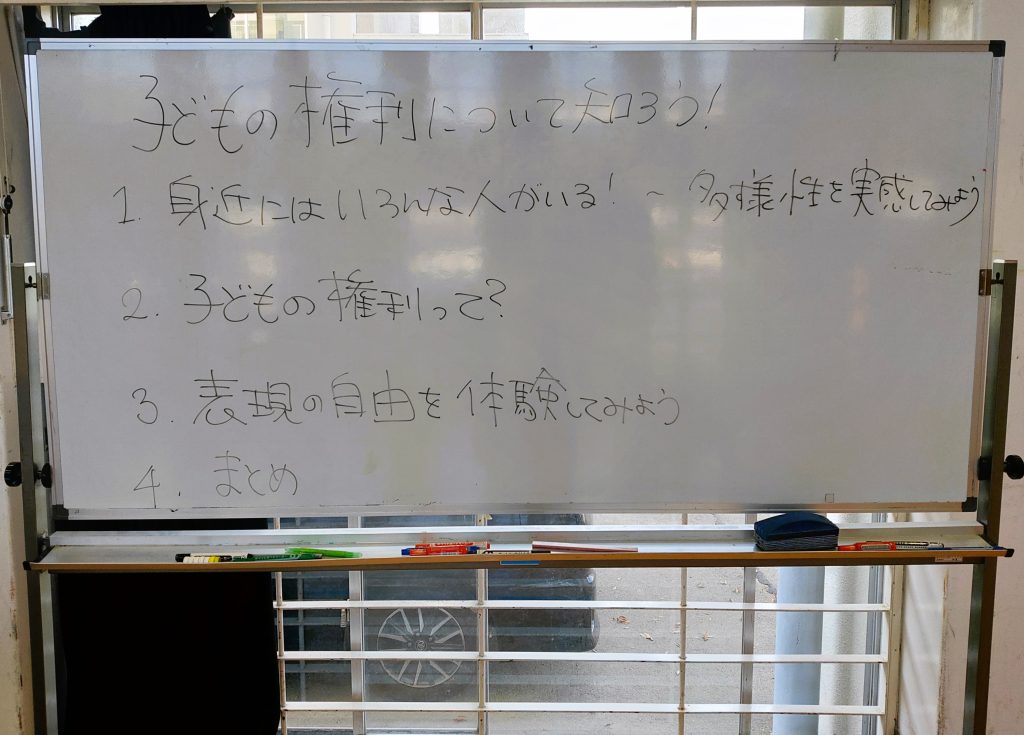 子どもの権利について知ろう!
1. 身近にはいろんな人がいる! ~ 多様性を実感してみよう
2. 子どもの権利って?
3. 表現の自由を体験してみよう
4. まとめ